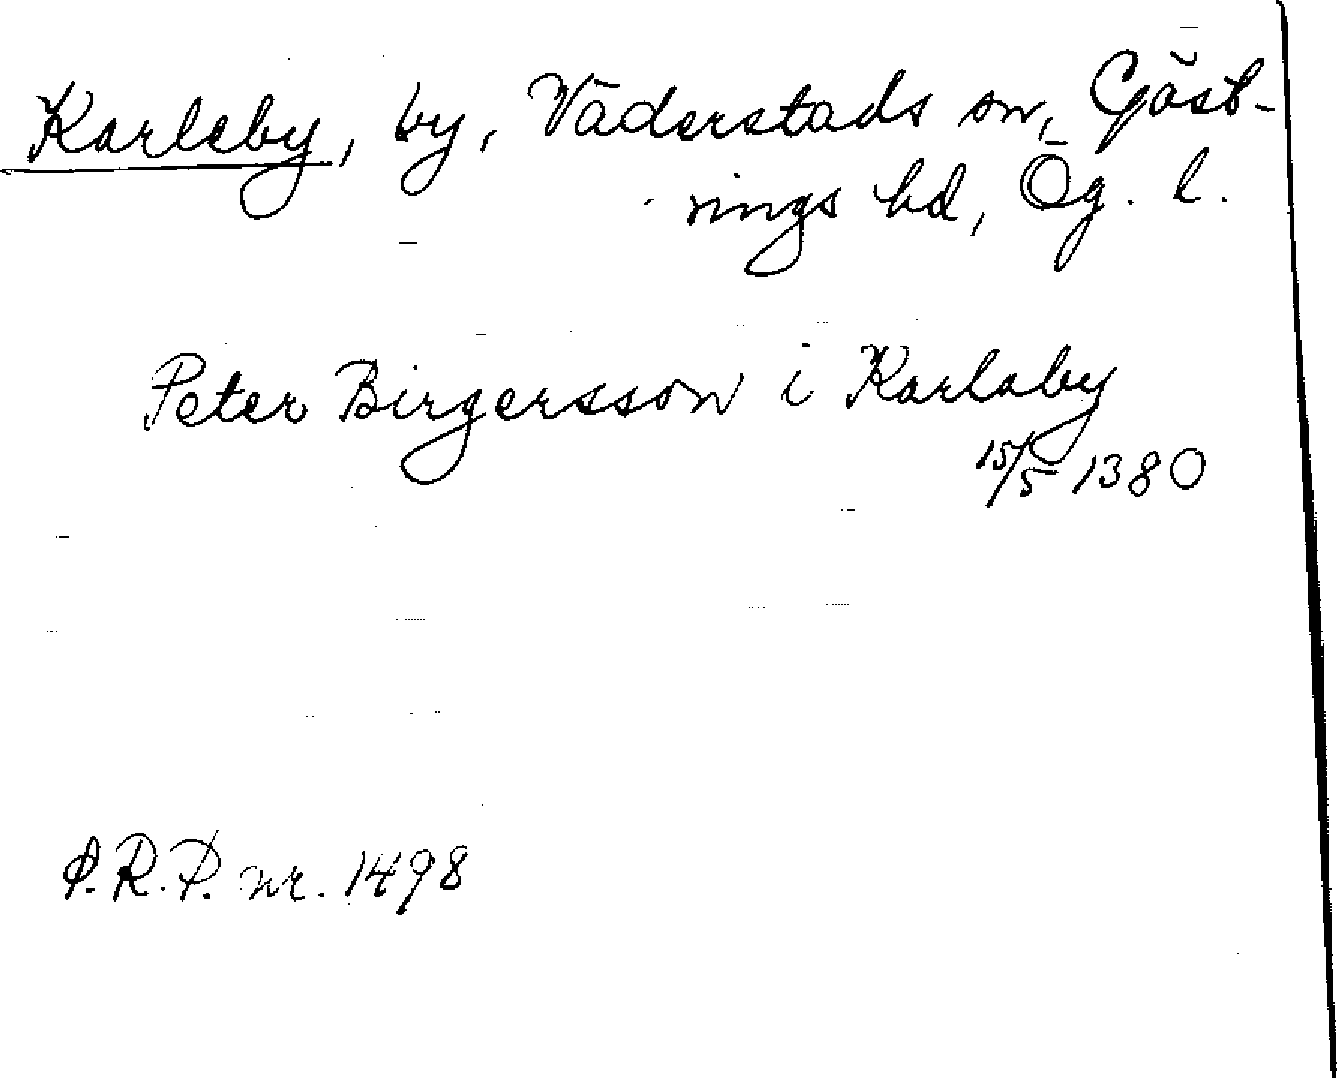 Karleby, by, Väderstads sn, Göst-
rings hd, Ög. l.
Peter Birgersson i Karlaby
15/5 1380
P.R.P. nr. 1498